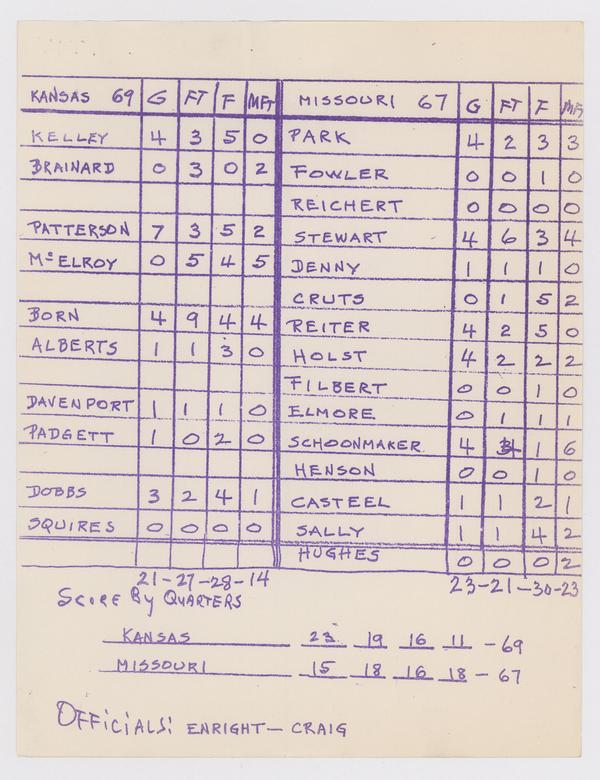 KANSAS 69 G FT F MFT MISSOURI 67 G FT F MFT
KELLEY 4 3 5 0 PARK 4 2 3 3
BRAINARD 0 3 0 2 FOWLER 0 0 1 0
REICHERT 0 0 0 0
PATTERSON 7 3 5 2 STEWART 4 6 3 4
McELROY 0 5 4 5 DENNY 1 1 1 0
CRUTS 0 1 5 2
BORN 4 9 4 4 REITER 4 2 5 0
ALBERTS 1 1 3 0 HOLST 4 2 2 2
FILBERT 0 0 1 0
DAVENPORT 1 1 1 0 ELMORE 0 1 1 1
PADGETT 1 0 2 0 SCHOONMAKER 4 1 6
HENSON 0 0 1 0
DOBBS 3 2 4 1 CASTEEL 1 1 2 1
SQUIRES 0 0 0 0 SALLY 1 1 4 2
HUGHES 0 0 0 2
21-27-28-14 23-21-30-23
SCORE By QUARTERS
KANSAS 23 19 16 11 - 69
MISSOURI 15 18 16 18 - 67
OFFiCiALS: ENRIGHT- CRAIG